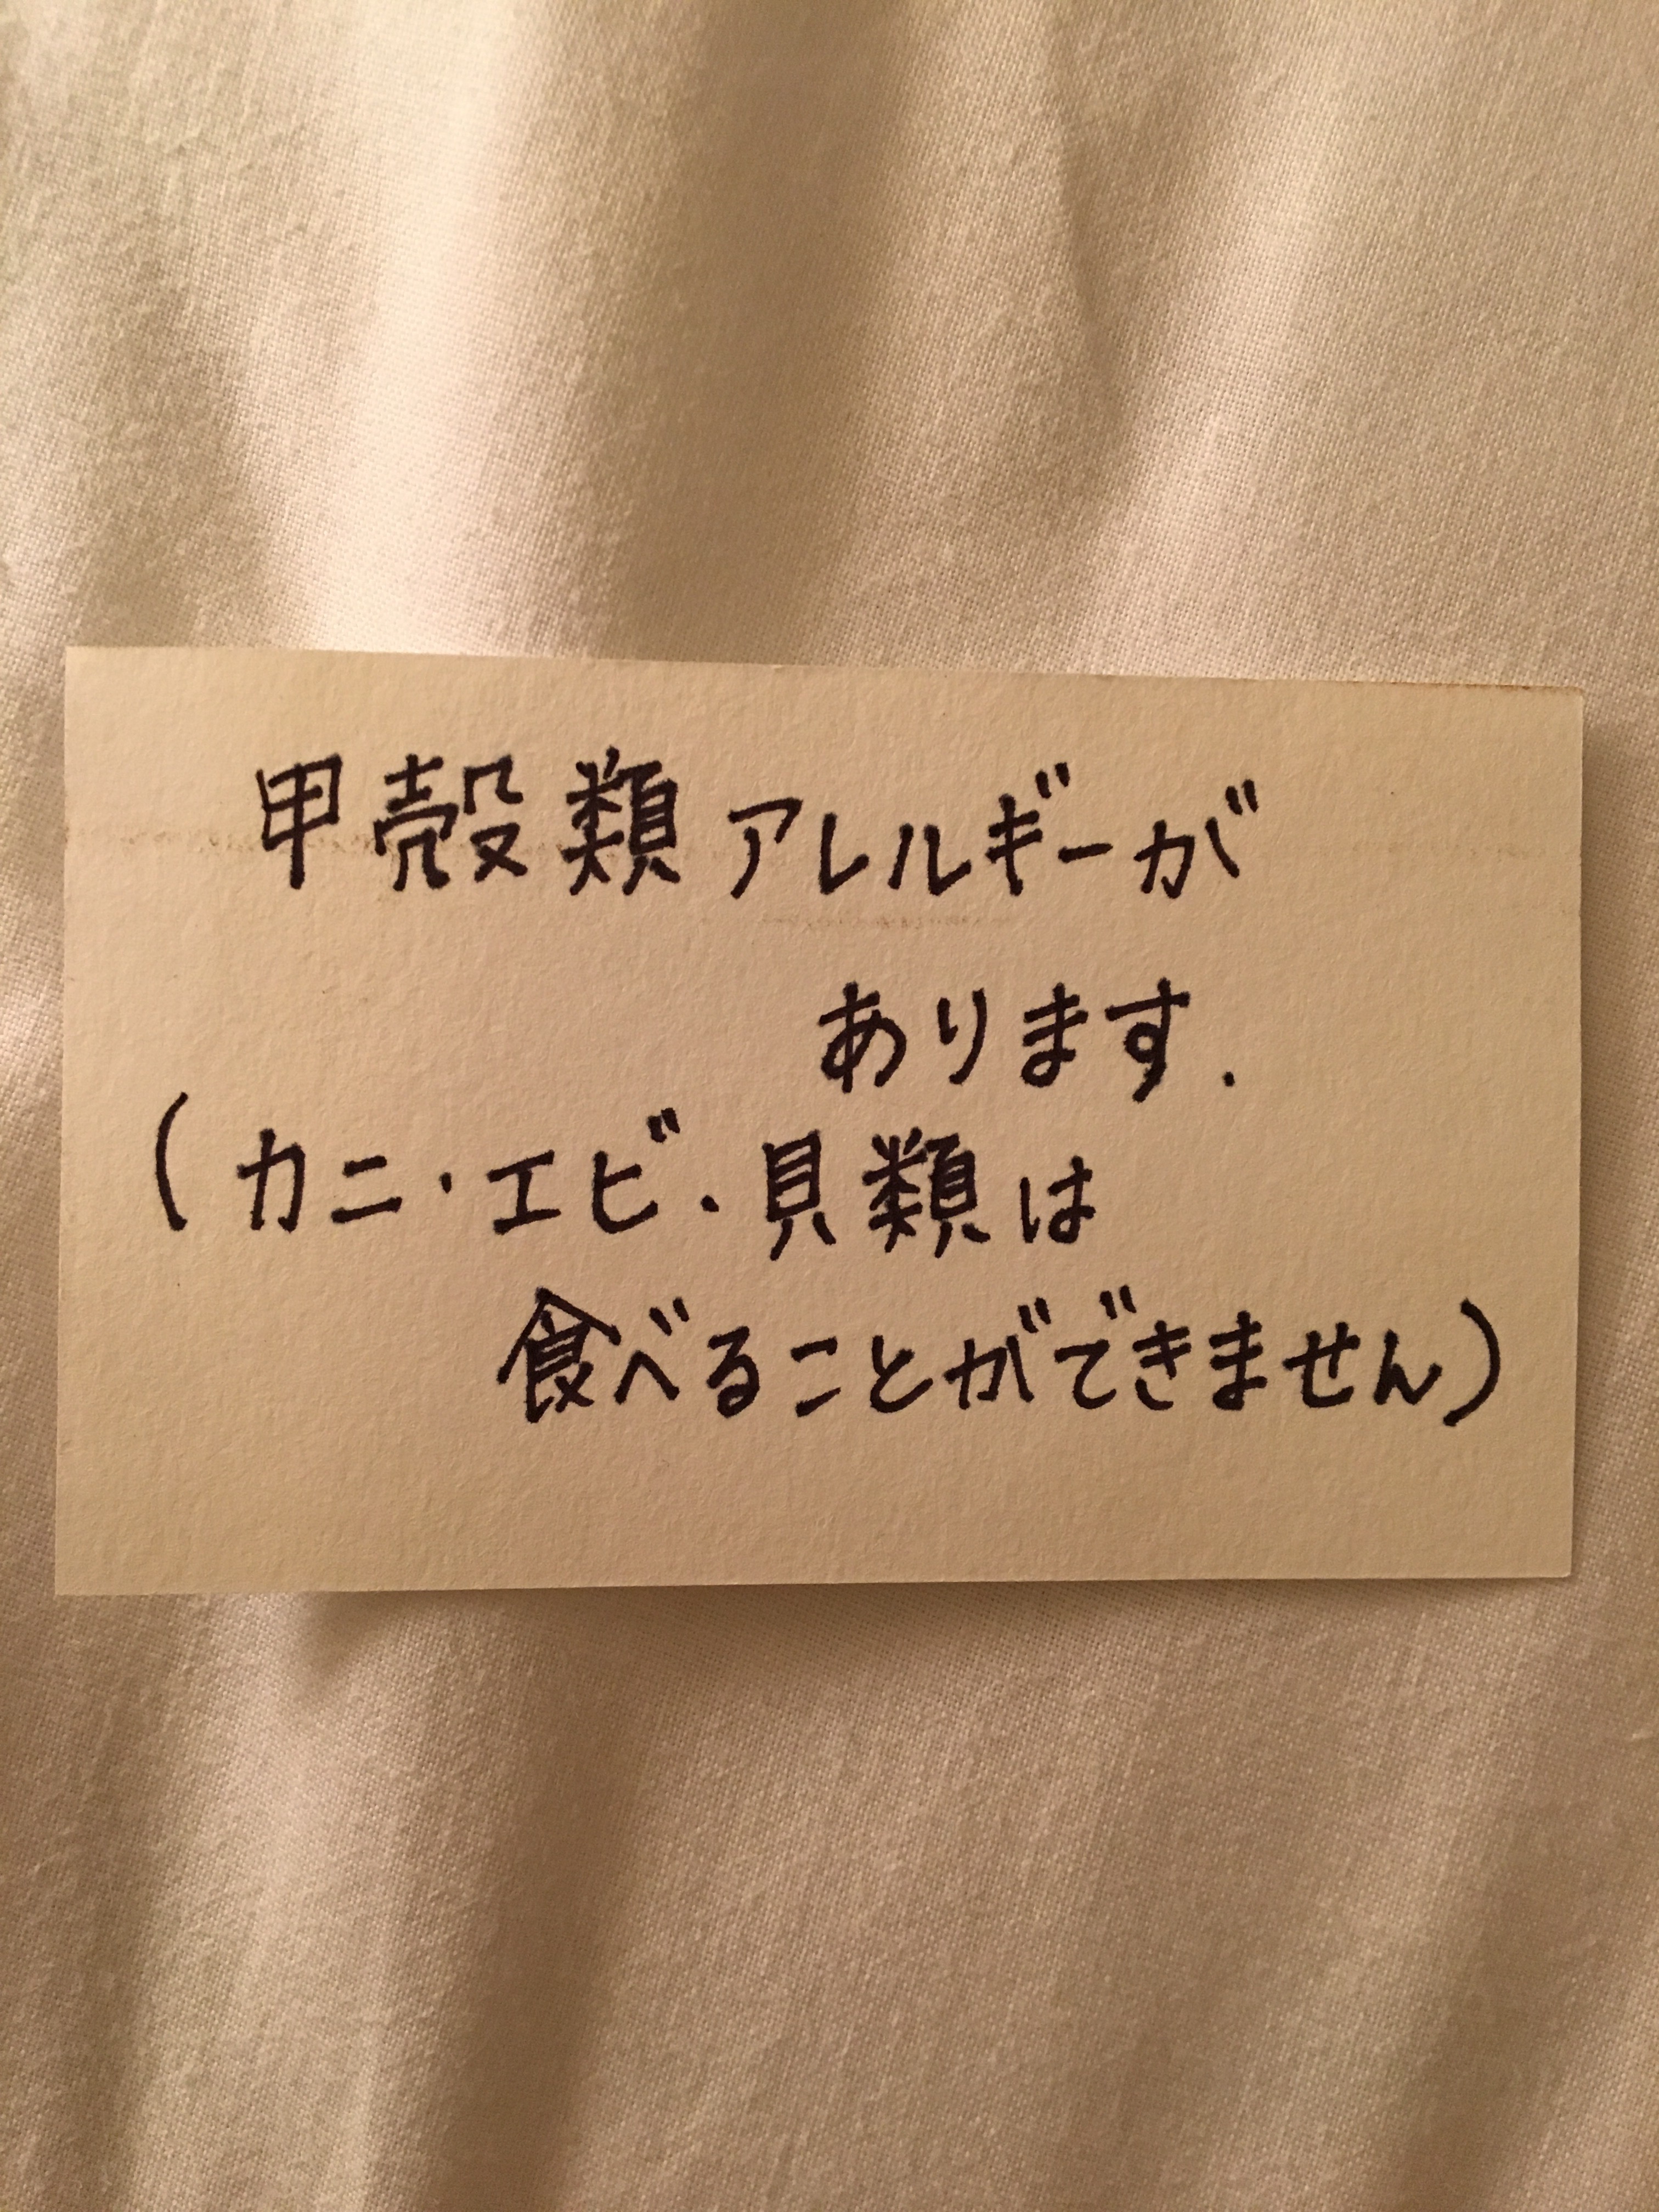 甲殻類アレルギーが
あります.
(カニ・エビ・貝類は
食べることができません)